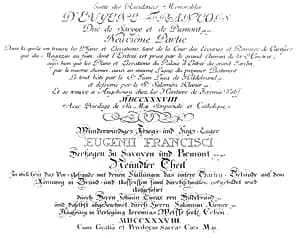 Suitte des Residences Memorables
D'EUGENE FRANÇOIS
Duc de Savoye et de Piemont
Neuvieme Partie
Dans la quelle on trouve les Plans et Elevations, tant de la Cour des Ecuries et Remises de Carosse
que du Magazin au foin dont l'Entrée est prise par le grand chemin de la
aussi bien que les Plans et Elevations du Palais à l'Entrée du grand Jardin
par le meme chemin aussi en meme Ligne du premier Batiment
Le tout bâti par le Sr. Jean Lucas de Hildebrand
et designé par le Sr. Salomon Kleiner
Et se trouve à Augsbourg chez les Heritiers de Jeremie Wolff
MDCCXXXVIII
Avec Privilege de Sa Maj. Imperiale et Catholique
Wunderwürdiges Kriegs- und Siegs-Lager
EUGENII FRANCISCI
Herzogen zu Savoyen und Piemont
Neundter Theil
In welchem das Vor-Gebäude mit denen Stallungen samt
Rennweg in Grund- und Auffrissen samt Durchschnitten vorgebildet wird
aufgeführt
durch Herrn Johann Lucas von Hildebrand
und daselbst abgezeichnet durch Herrn Salomon Kleiner
Augspurg in Verlegung Jeremias Wolffs seel. Erben
MDCCXXXVIII
Cum Gratia et Privilegio Sacrae Caes. Maj.